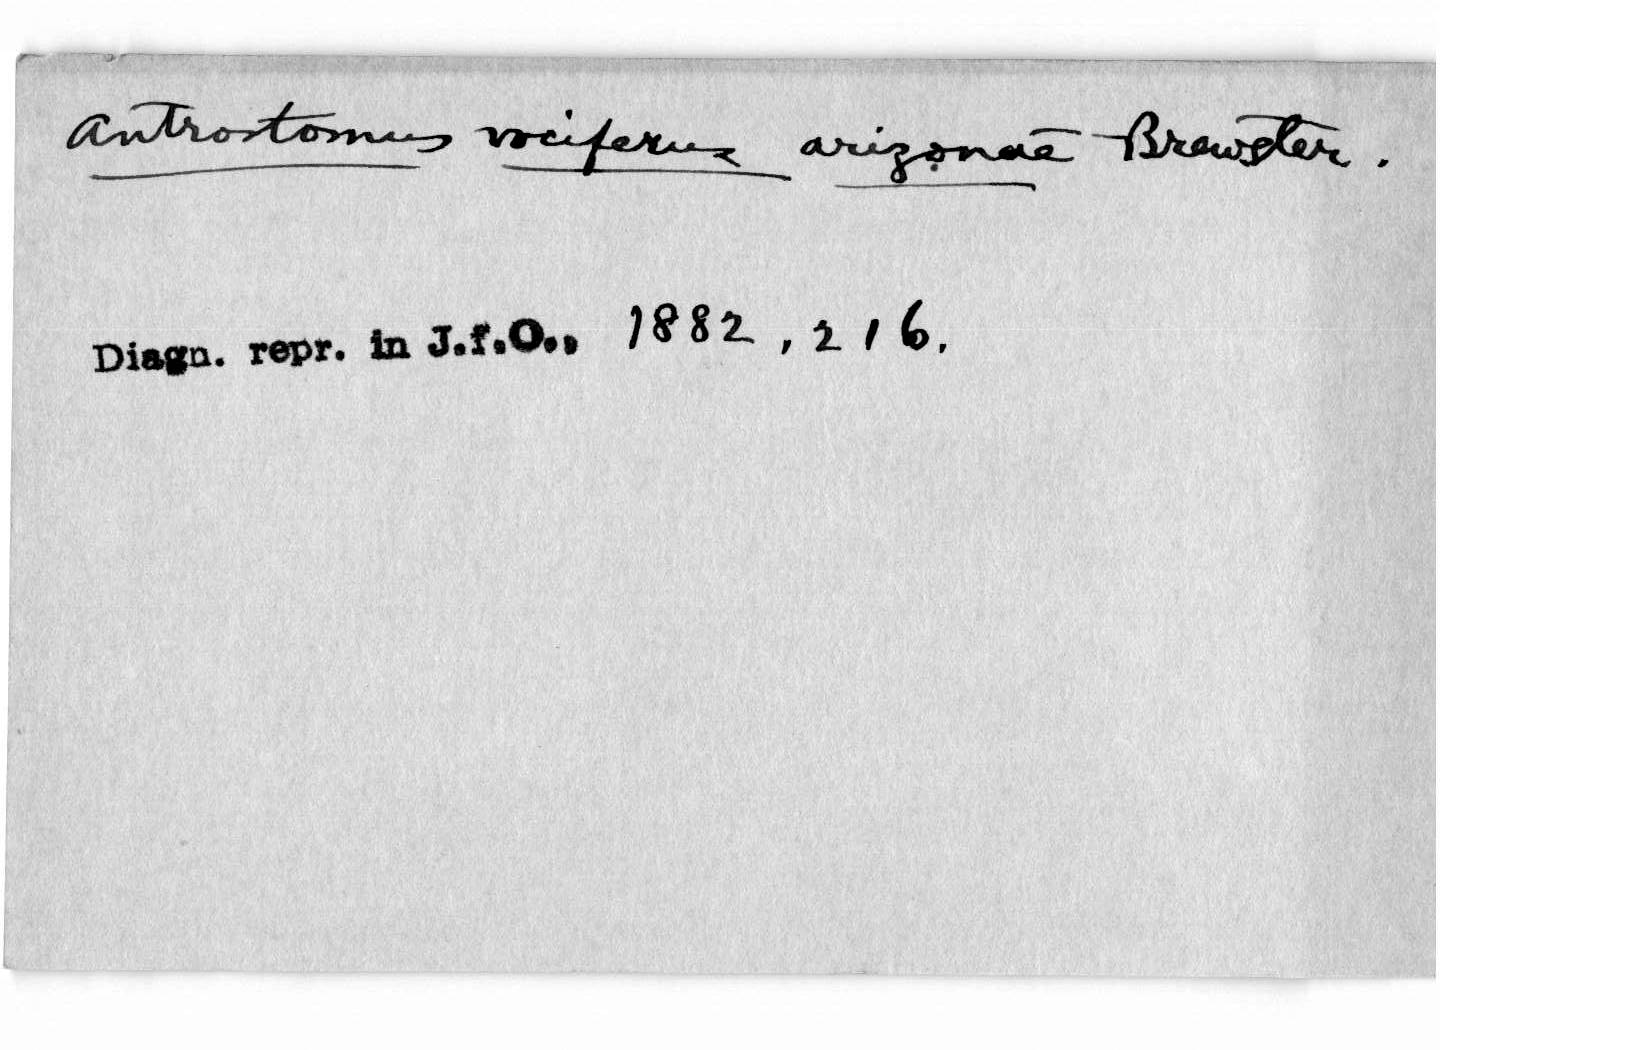 Antrostomus vociferus arizonae Brewster.
Diagn. repr. in J.f.O., 1882, 216.